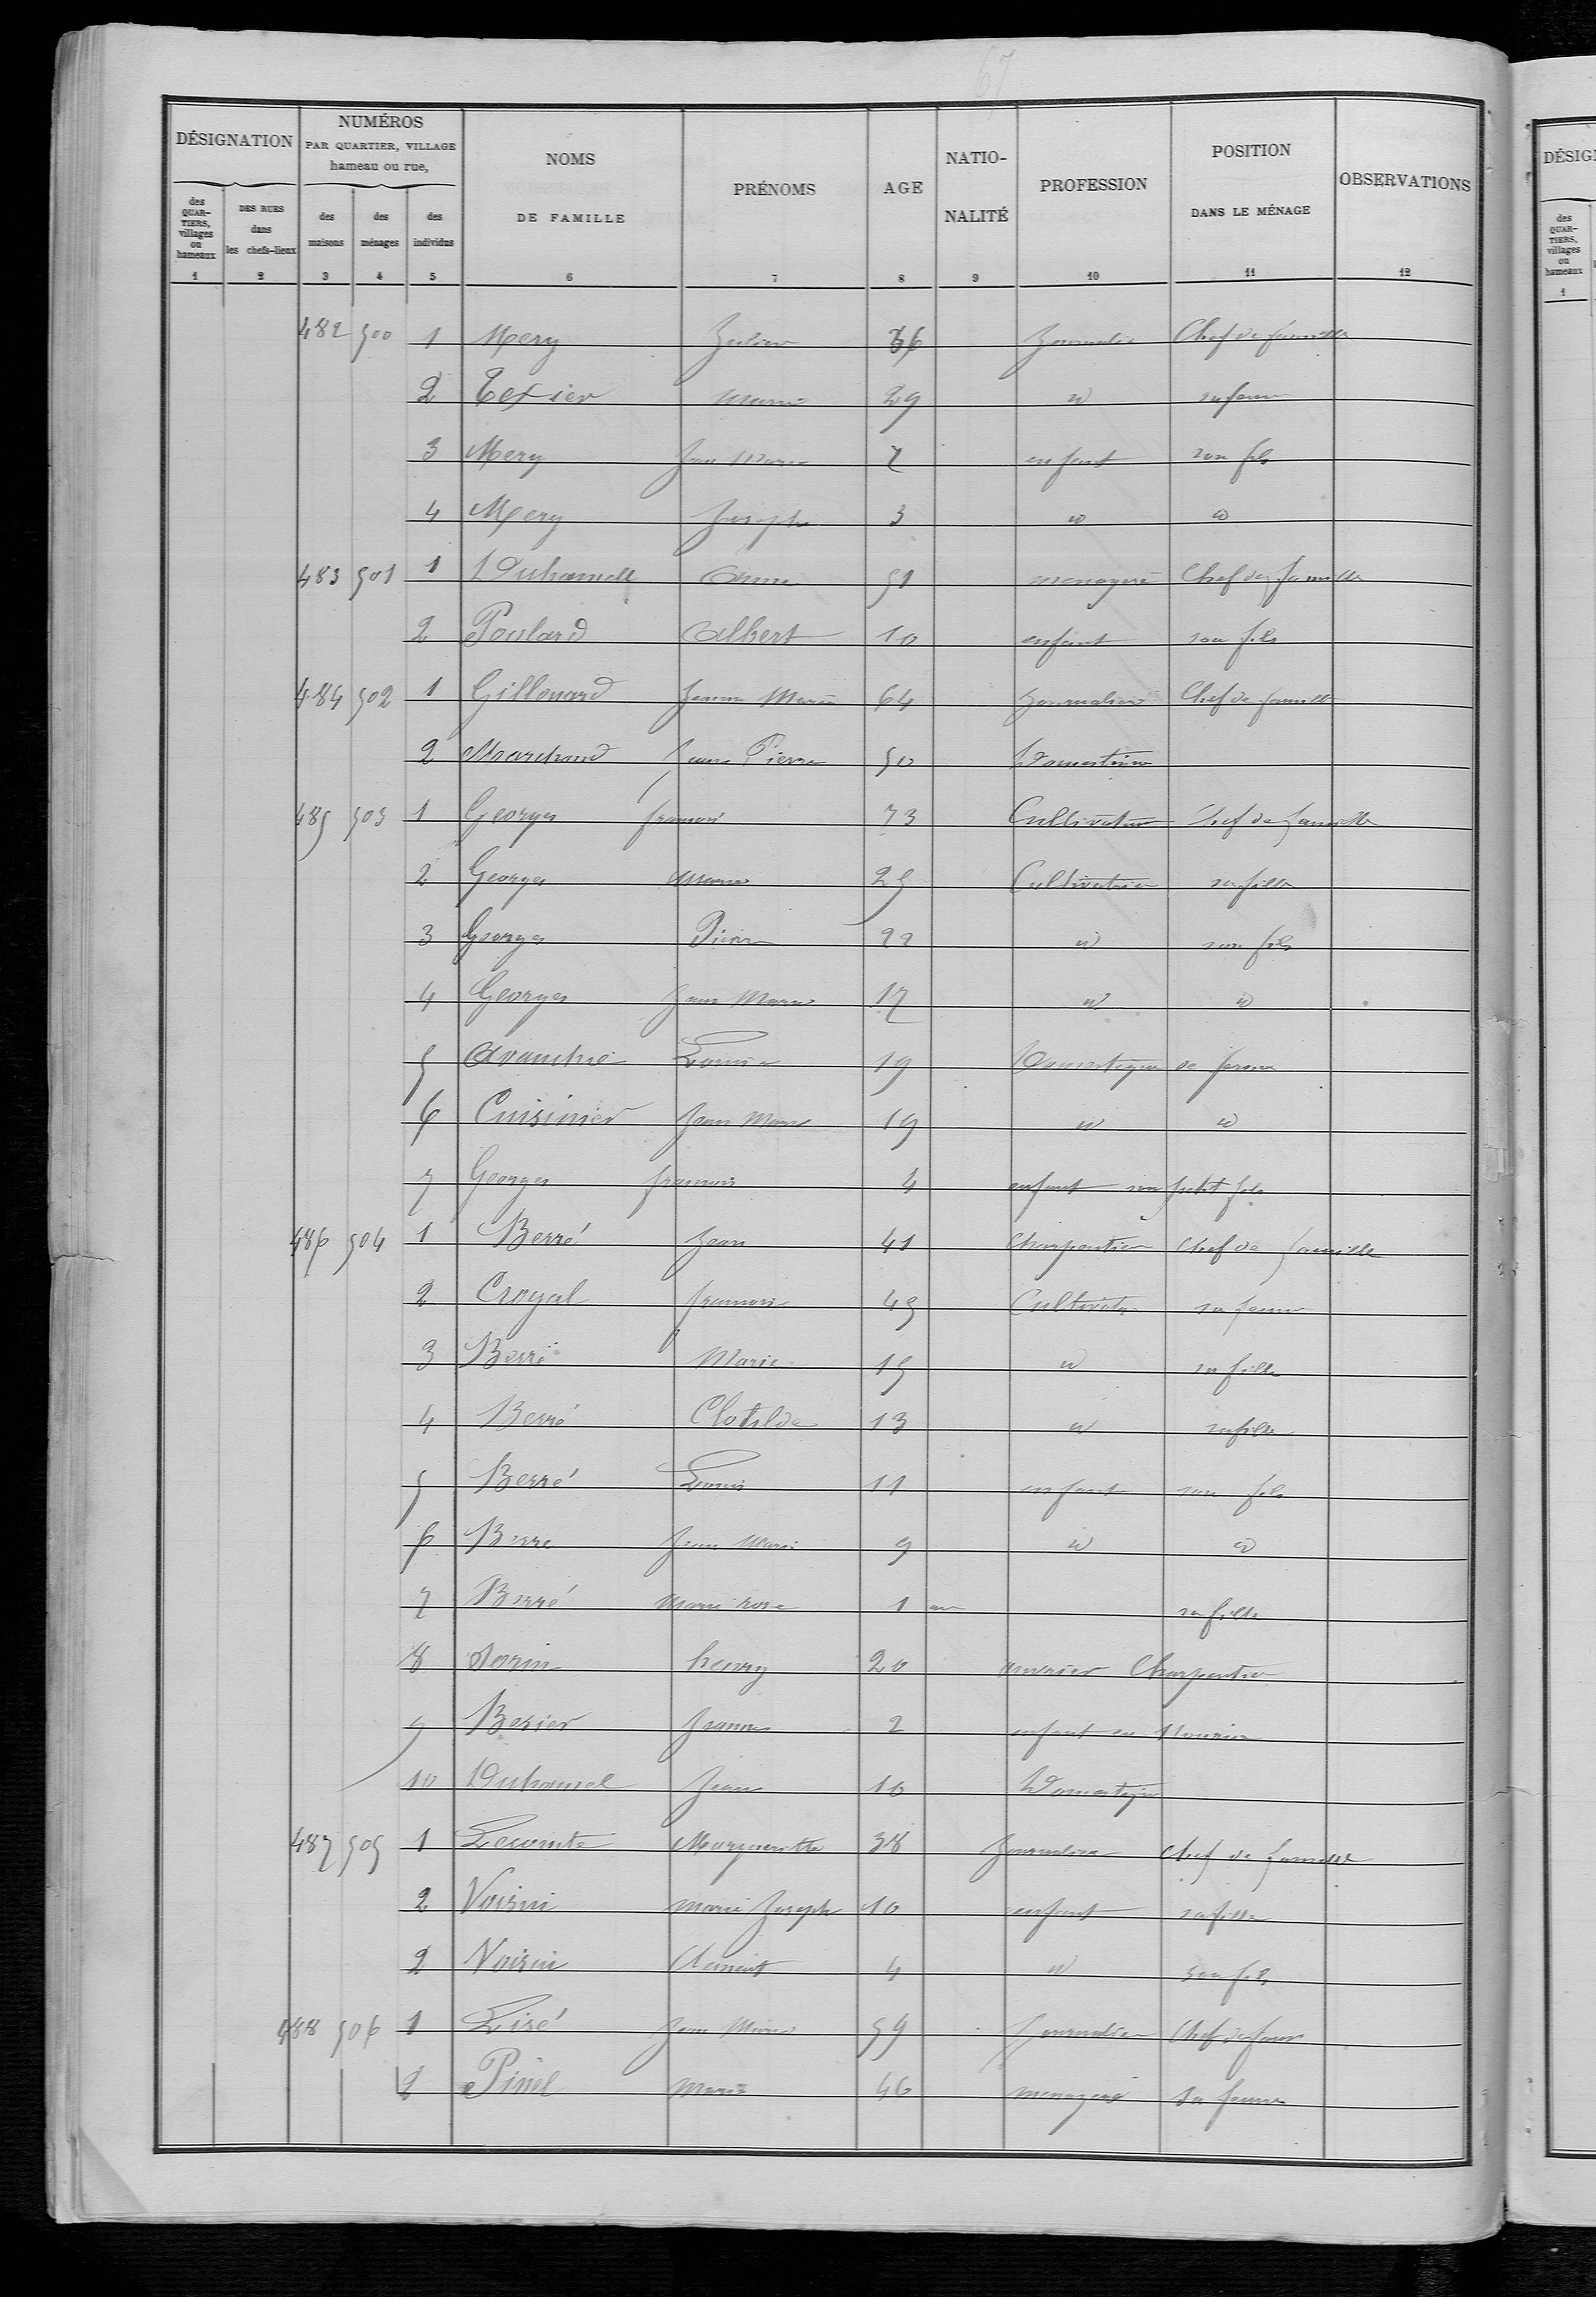 67
DÉSIGNATION
NUMÉROS
PAR QUARTIER, VILLAGE
hameau ou rue,
des QUAR-TIERS, villages ou hameaux
DES RUES dans les chefs-lieux
des maisons
des ménages
des individus
NOMS DE FAMILLE
PRÉNOMS
AGE
NATIO-NALITÉ
PROFESSION
POSITION DANS LE MÉNAGE
OBSERVATIONS
1 2 3 4 5 6 7 8 9 10 11 12
482 500 1 Mery Julien 36 Journalier Chef de famille
2 Texier Marie 29 id sa femme
3 Mery Jean Marie 7 enfant son fils
4 Mery Joseph 3 id id
483 501 1 Duhamell Anne 51 menagere Chef de famille
2 Poulard Albert 10 enfant son fils
484 502 1 Gillouard Jeanne Marie 64 Journalière Chef de famille
2 Marchand Jean Pierre 50 Domestique
485 503 1 Georges françois 73 Cultivateur Chef de famille
2 Georges Marie 25 Cultivatrice sa fille
3 Georges Pierre 22 id son fils
4 Georges Jean Marie 17 id id
5 Louise 19 Domestique de ferme
6 Cuisinier Jean Marie 19 id id
7 Georges françois 4 enfant son petit fils
486 504 1 Berré Jean 41 Charpentier Chef de famille
2 Croyal françoise 45 Cultivatrice sa femme
3 Berré Marie 15 id sa fille
4 Berré Clotilde 13 id sa fille
5 Berré Louis 11 enfant son fils
6 Berre Jean Marie 9 id id
7 Berré Marie rose 1 an sa fille
8 henry 20 ouvrier Charpentier
9 Besier Jeanne 2 enfant en Nourrice
10 Duhamel Jean 16 Domestique
487 505 1 Lecointe Margueritte 38 Journalière Chef de famille
2 Voisin Marie Joseph 10 enfant sa fille
2 Voisin Clement 4 id son fils
488 506 1 Lisé Jean Marie 59 Journalier Chef de fam
2 Pinel Marie 46 menagere sa femme
DÉSIGN
des QUAR-TIERS, villages ou hameaux
1